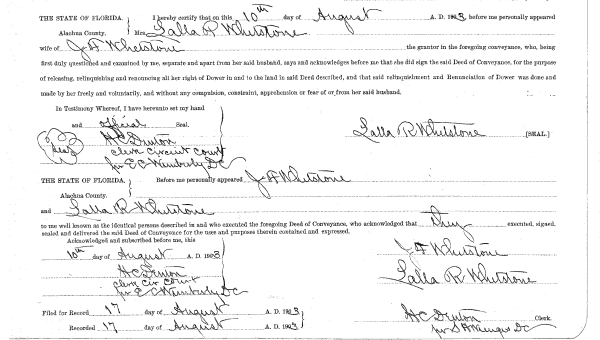 THE STATE OF FLORIDA. } I hereby certify that on this 10th day of August A. D. 1923 before me personally appeared
Alachua County. Mrs. Lalla R Whetstone
wife of J F Whetstone the grantor in the foregoing conveyance, who, being
first duly questioned and examined by me, separate and apart from her said husband, says and acknowledges before me that she did sign the said Deed of Conveyance, for the purpose
of releasing, relinquishing and renouncing all her right of Dower in and to the land in said Deed described, and that said relinquishment and Renunciation of Dower was done and
made by her freely and voluntarily, and without any compulsion, constraint, apprehension or fear of or from her said husband.
In Testimony Whereof, I have hereunto set my hand
and official Seal.
Lalla R Whetstone [SEAL.]
Seal
H C Denton
Clerk Circuit Court
for E C Wimberly DC
THE STATE OF FLORIDA. } Before me personally appeared J F Whetstone
Alachua County.
and Lalla R Whetstone
to me well known as the identical persons described in and who executed the foregoing Deed of Conveyance, who acknowledged that they executed, signed.
sealed and delivered the said Deed of Conveyance for the uses and purposes therein contained and expressed.
Acknowledged and subscribed before me, this
10th day of August A. D. 1923
J F Whetstone
H C Denton
Lalla R Whetstone
Clerk Cir Court
for E C Wimberly DC
Filed for Record 17 day of August A. D. 1923
H C Denton Clerk.
Recorded 17 day of August A. D. 1923
for DC